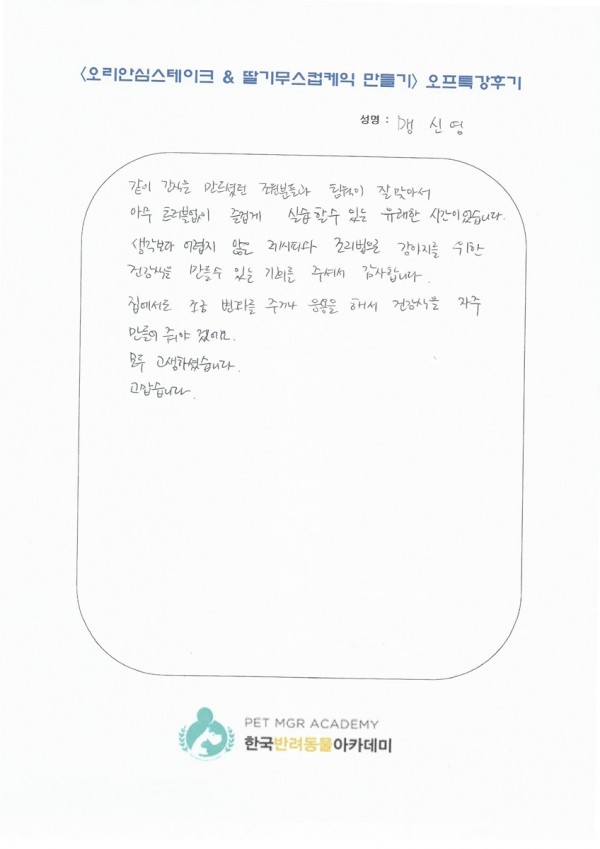 <오리안심스테이크 & 딸기무스컵케익 만들기> 오프특강후기
성명 : 맹 신 영
같이 간식을 만드셨던 조원분들과 팀웍이 잘맞아서
아무 트러블없이 즐겁게 실습할수 있는 유쾌한 시간이었습니다.
생각보다 어렵지 않은 레시피와 조리법으로 강아지를 위한
건강식을 만들수 있는 기회를 주셔서 감사합니다.
집에서도 조금 변화를 주거나 응용을 해서 건강식을 자주
만들어 줘야 겠어요.
모두 고생하셨습니다.
고맙습니다.
PET MGR ACADEMY
한국반려동물아카데미